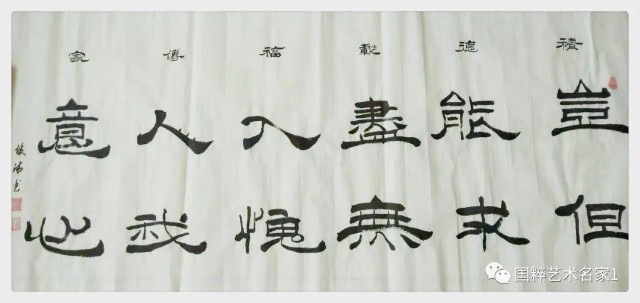 積德載福傳家
豈能盡入人意
但求無愧我心
国粹艺术名家1